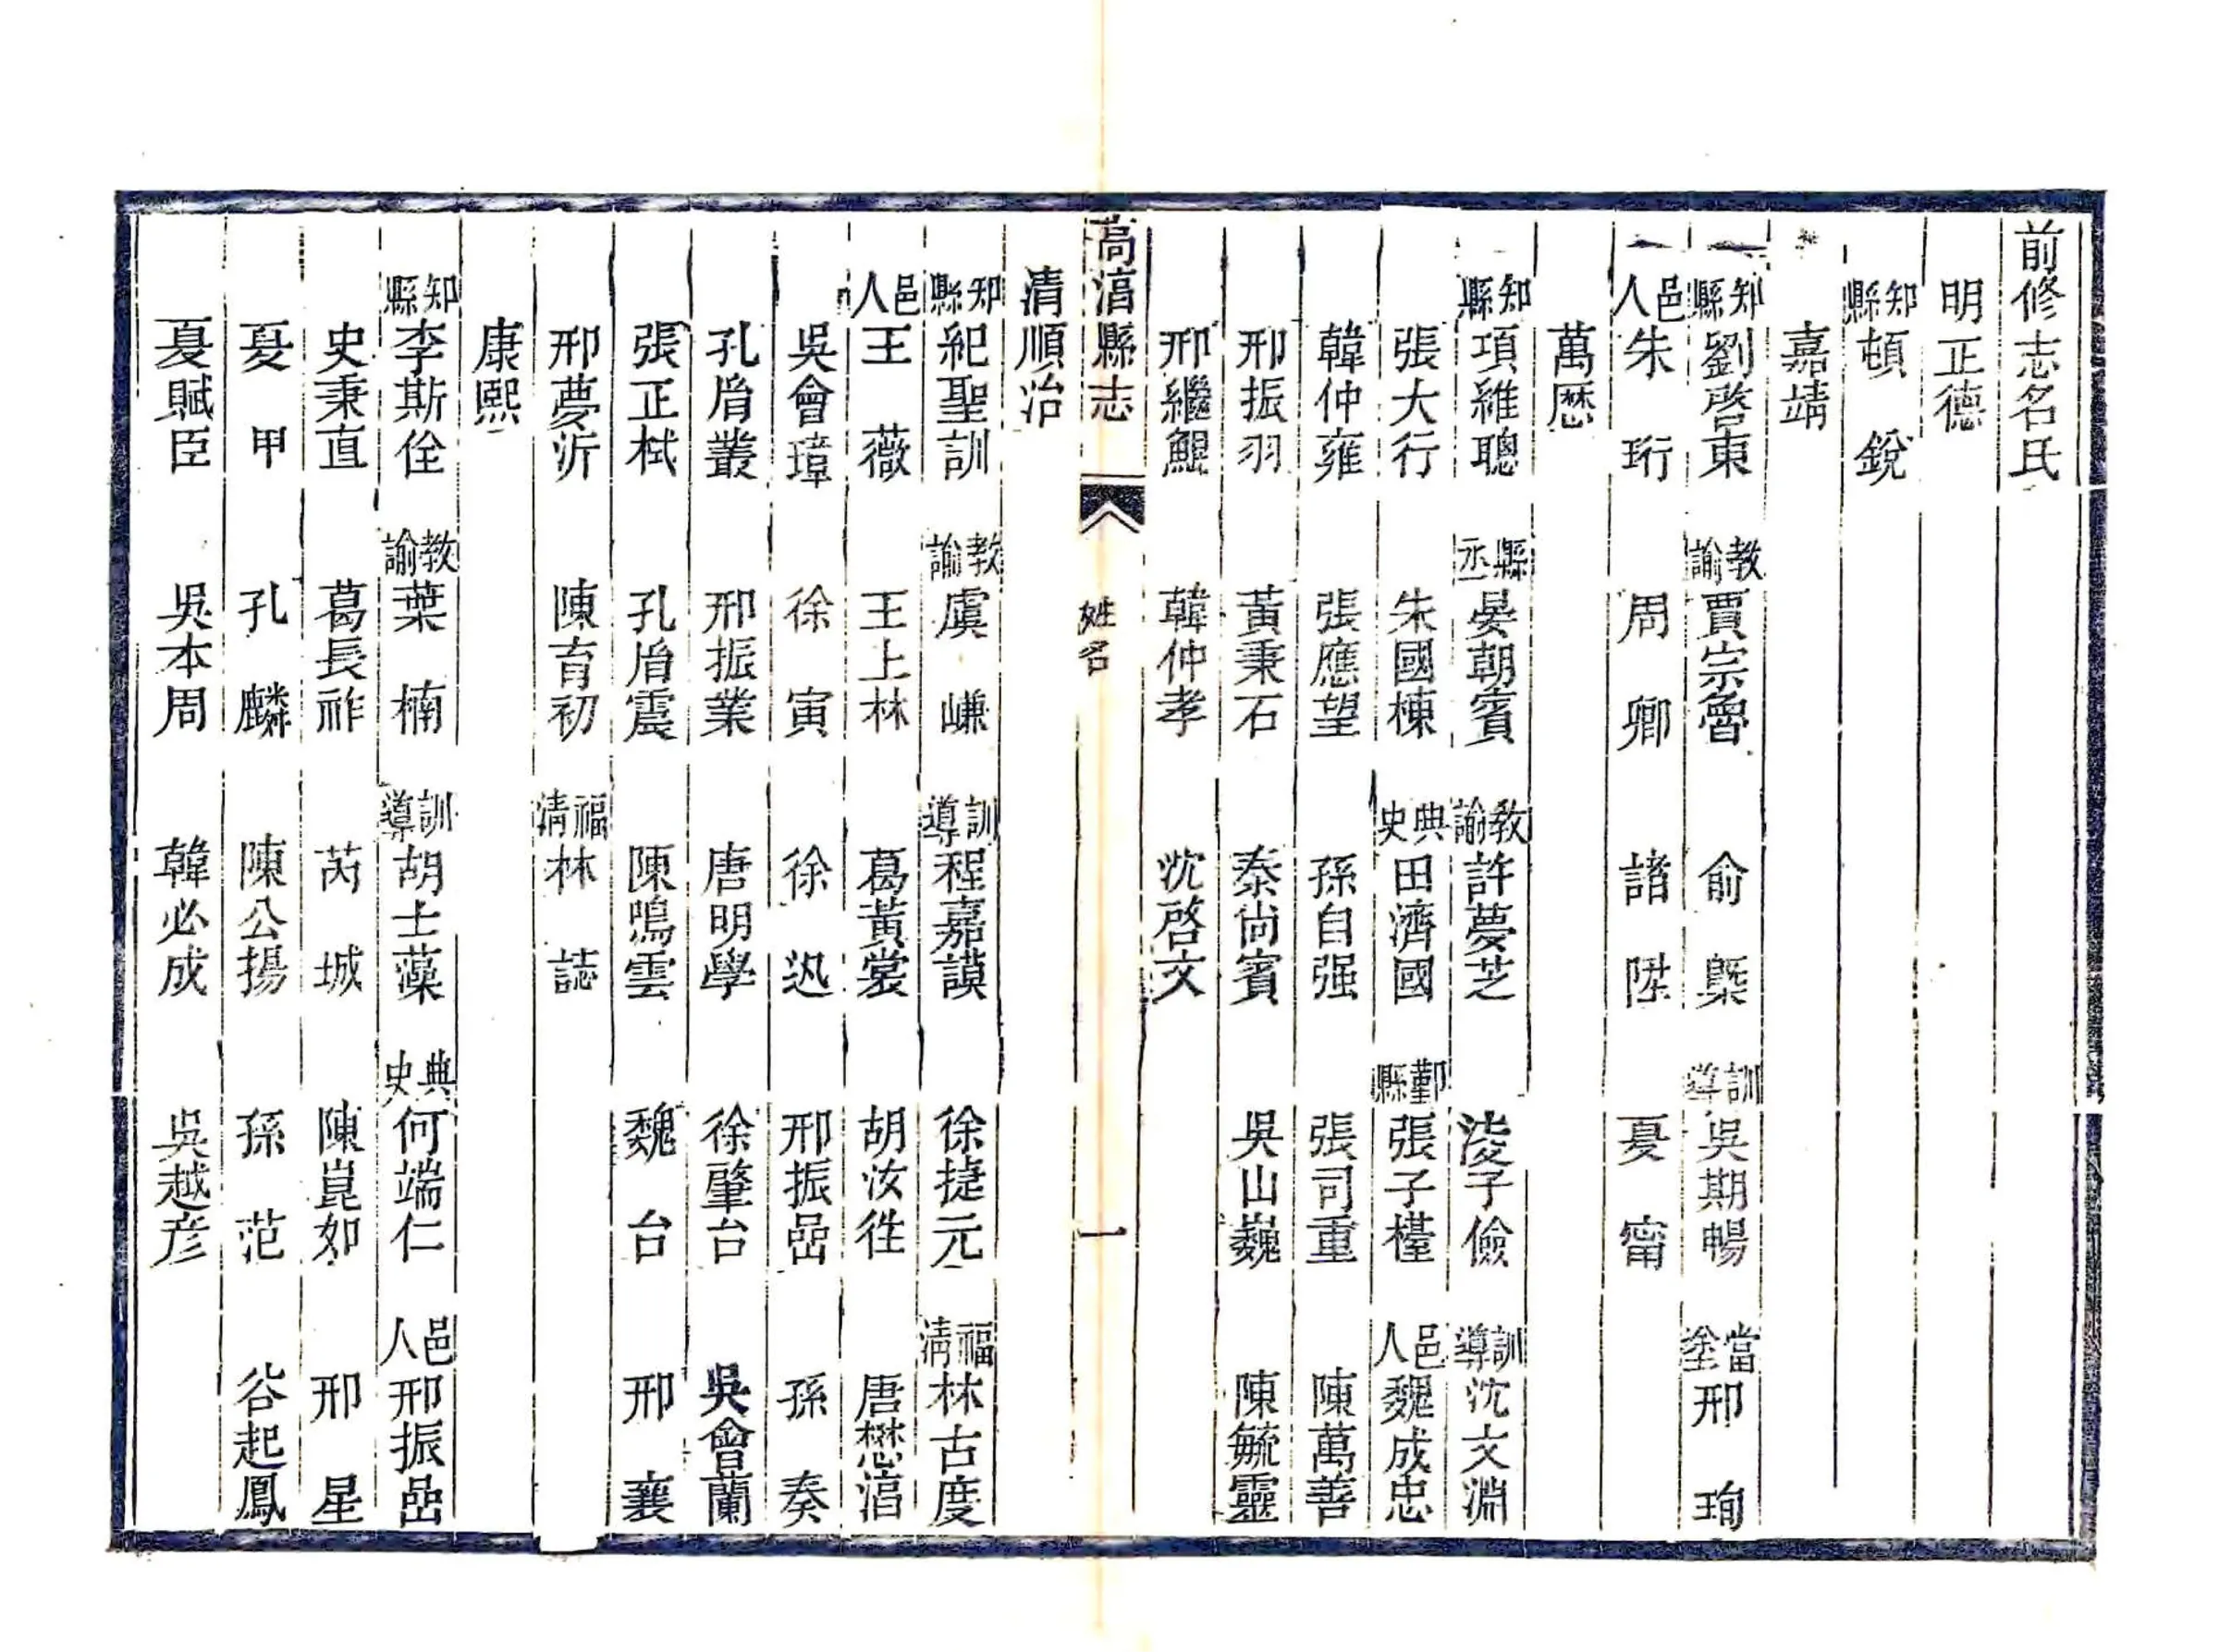 前修志名氏
明正德
知縣頓銳
嘉靖
知縣劉啓東 教諭賈宗魯 俞㮣 訓導吳期暢 當塗邢珣
邑人朱珩 周卿 諸陞 夏甯
萬歷
知縣項維聰 縣丞晏朝賓 教諭許夢芝 淩子儉 訓導沈文淵
張大行 朱國棟 典史田濟國 鄞縣張子𣜜 邑人魏成忠
韓仲雍 張應望 孫自强 張司重 陳萬善
邢振羽 黃秉石 秦尙賓 吳山巍 陳毓靈
邢繼鯤 韓仲孝 沈啓文
高淳縣志 姓名 一
清順治
知縣紀聖訓 教諭虞㠓 訓導程嘉謨 徐捷元 福清林古度
邑人王薇 王上林 葛黃裳 胡汝徃 唐懋淳
吳會璋 徐寅 徐迅 邢振嵒 孫奏
孔㣧叢 邢振業 唐明學 徐肇台 吳會蘭
張正栻 孔㣧震 陳鳴雲 魏台 邢襄
邢夢沂 陳育初 福清林誌
康熙
知縣李斯佺 教諭葉楠 訓導胡士藻 典史何端仁 邑人邢振嵒
史秉直 葛長祚 芮城 陳崑如 邢星
夏甲 孔麟 陳公揚 孫范 谷起鳳
夏賦臣 吳本周 韓必成 吳越彦